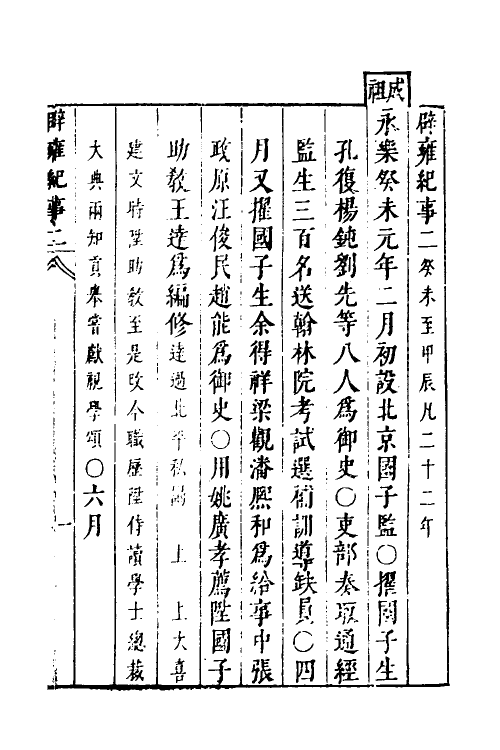 辟雍紀事二癸未至甲辰凡二十二年
成祖
永樂癸未元年二月初設北京國子監○擢國子生
孔復楊鈍劉先等八人為御史○吏部奏取通經
監生三百名送翰林院考試選補訓導缺員○四
月又擢國子生余得祥梁觀潘熙和為給事中張
政原汪俊民趙能為御史○用姚廣孝薦陞國子
助教王達為編修達過北平私謁 上 上大喜
建文時陞助教至是改今職歷陞侍讀學士總裁
大典兩知貢舉嘗獻視學頌○六月
辟雍紀事二
一